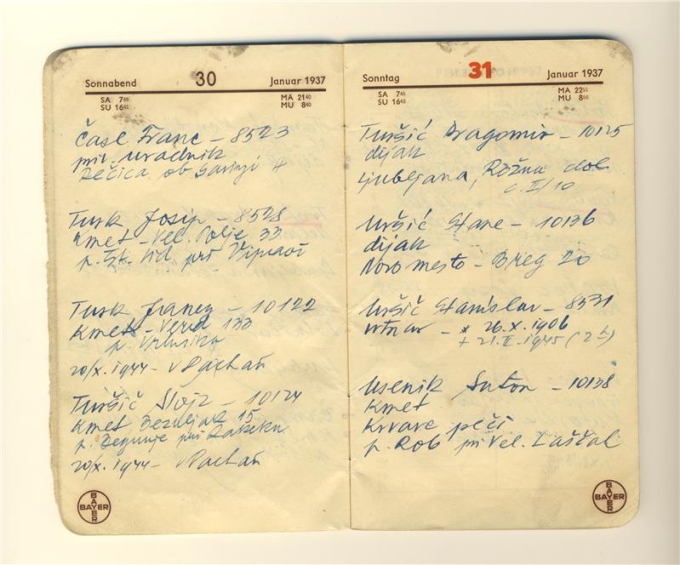 Sonnabend 30 Januar 1937
SA. 7⁴⁶ MA 21⁴⁰
SU 16⁴² MU 8⁴⁰
Časl Franc - 8523
priv. uradnik
Rečica ob Savinji 4
Turk Josip - 8528
kmet - Vel. Polje 33
p. Šk. Vid pri Vipavi
Turk Franc - 10122
Kmet - Verd 133
p. Vrhnika
20/X. 1944 - v Dachau
Turšič Alojz - 10124
Kmet Bezuljak 15
p. Begunje pri Rakeku
20/X. 1944 - Dachau
BAYER
Sonntag 31 Januar 1937
SA. 7 MA 22
SU 16 MU 8
Turšić Dragomir - 10125
dijak
Ljubljana, Rožna dol
c. II/10
Uršić Stane - 10136
dijak
Novo mesto - Breg 20
Uršič Stanislav - 8531
vrtnar - * 26.X.1906
+ 21.II.1945
Usenik Anton - 10138
Kmet
Krvave peči
p. Rob pri Vel. Laščah
BAYER